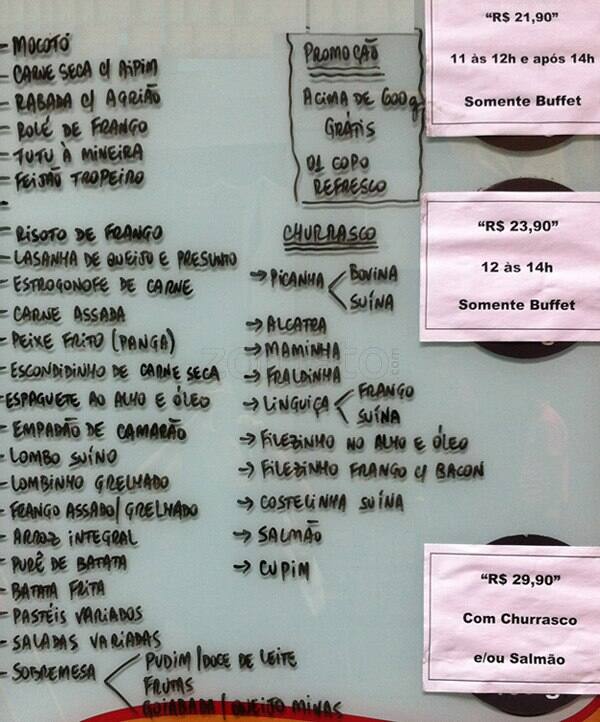 - MOCOTÓ
- CARNE SECA C/ AIPIM
- RABADA C/ AGRIÃO
- ROLÉ DE FRANGO
- TUTU À MINEIRA
- FEIJÃO TROPEIRO
-
- RISOTO DE FRANGO
- LASANHA DE QUEIJO E PRESUNTO
- ESTROGONOFE DE CARNE
- CARNE ASSADA
- PEIXE FRITO (PANGA)
- ESCONDIDINHO DE CARNE SECA
- ESPAGUETE AO ALHO E ÓLEO
- EMPADÃO DE CAMARÃO
- LOMBO SUÍNO
- LOMBINHO GRELHADO
- FRANGO ASSADO/GRELHADO
- ARROZ INTEGRAL
- PURÊ DE BATATA
- BATATA FRITA
- PASTÉIS VARIADOS
- SALADAS VARIADAS
- SOBREMESA
PUDIM/DOCE DE LEITE
FRUTAS
GOIABADA/QUEIJO MINAS
PROMOÇÃO
ACIMA DE 600g
GRÁTIS
01 COPO
REFRESCO
CHURRASCO
→ PICANHA
BOVINA
SUÍNA
→ ALCATRA
→ MAMINHA
→ FRALDINHA
→ LINGUIÇA
FRANGO
SUÍNA
→ FILEZINHO NO ALHO E ÓLEO
→ FILEZINHO FRANGO C/ BACON
→ COSTELINHA SUÍNA
→ SALMÃO
→ CUPIM
"R$ 21,90"
11 às 12h e após 14h
Somente Buffet
"R$ 23,90"
12 às 14h
Somente Buffet
"R$ 29,90"
Com Churrasco
e/ou Salmão